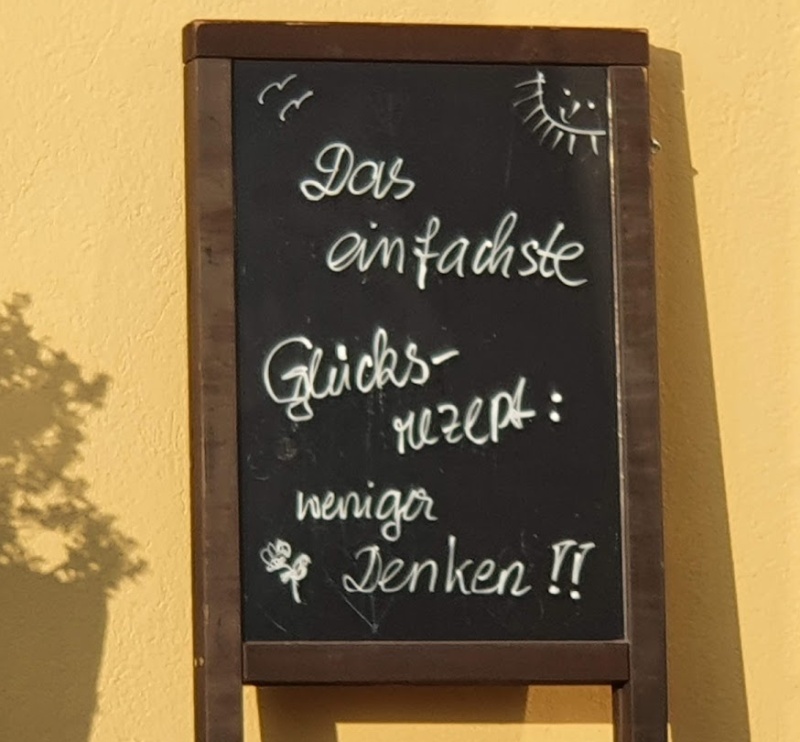 Das
einfachste
Glücks-
rezept:
weniger
Denken!!